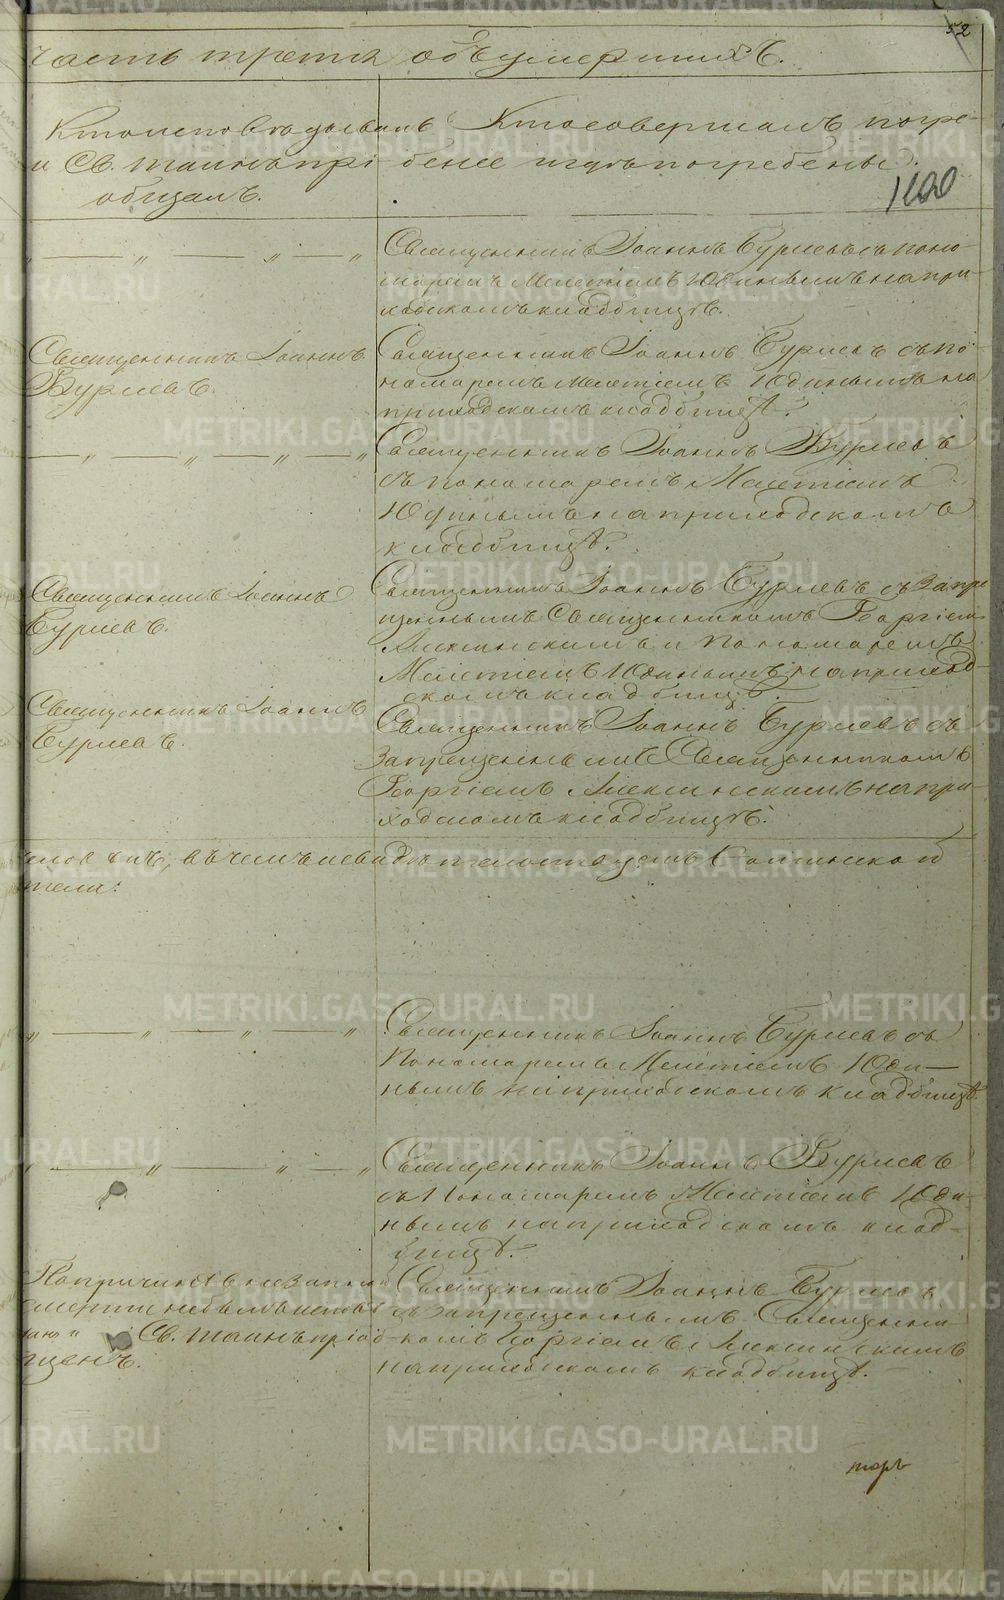 52
часть третія объумершихъ.
Ктоисповѣдывалъ
и Св. таинъ прі-
общалъ.
Ктосовершалъ погре-
бенее игдѣпогребены.
1100
Священникъ Іоаннъ Бурлевъ съ поно-
маремъ Мелетіемъ Юдинымъ на при-
ходскомъ кладбищѣ.
Священникъ Іоаннъ
Бурлевъ.
Священникъ Іоаннъ Бурлевъ съ по-
номаремъ Мелетіемъ Юдинымъ на
приходскомъ кладбищѣ.
Священникъ Іоаннъ Бурлевъ
съ пономаремъ Мелетіемъ
Юдинымъ на приходскомъ
кладбищѣ.
Священникъ Іоаннъ
Бурлевъ.
Священникъ Іоаннъ Бурлевъ съ запре-
щеннымъ Священникомъ Георгіемъ
и Пономаремъ
Мелетіемъ Юдинымъ на приход-
скомъ кладбищѣ.
Священникъ Іоаннъ
Бурлевъ.
Священникъ Іоаннъ Бурлевъ съ
запрещеннымъ Священникомъ
Георгіемъ на при-
ходскомъ кладбищѣ.
въ чемъ
тели:
Священникъ Іоаннъ Бурлевъ съ
Пономаремъ Мелетіемъ Юди-
нымъ на приходскомъ кладбищѣ.
Священникъ Іоаннъ Бурлевъ
съ Пономаремъ Мелетіемъ Юди-
нымъ на приходскомъ клад-
бищѣ.
По причинѣ внезапной
смерти небылъ
Св. таинъ пріоб-
щенъ.
Священникъ Іоаннъ Бурлевъ
съ запрещеннымъ Священни-
комъ Георгіемъ
на приходскомъ кладбищѣ.
METRIKI.GASO-URAL.RU